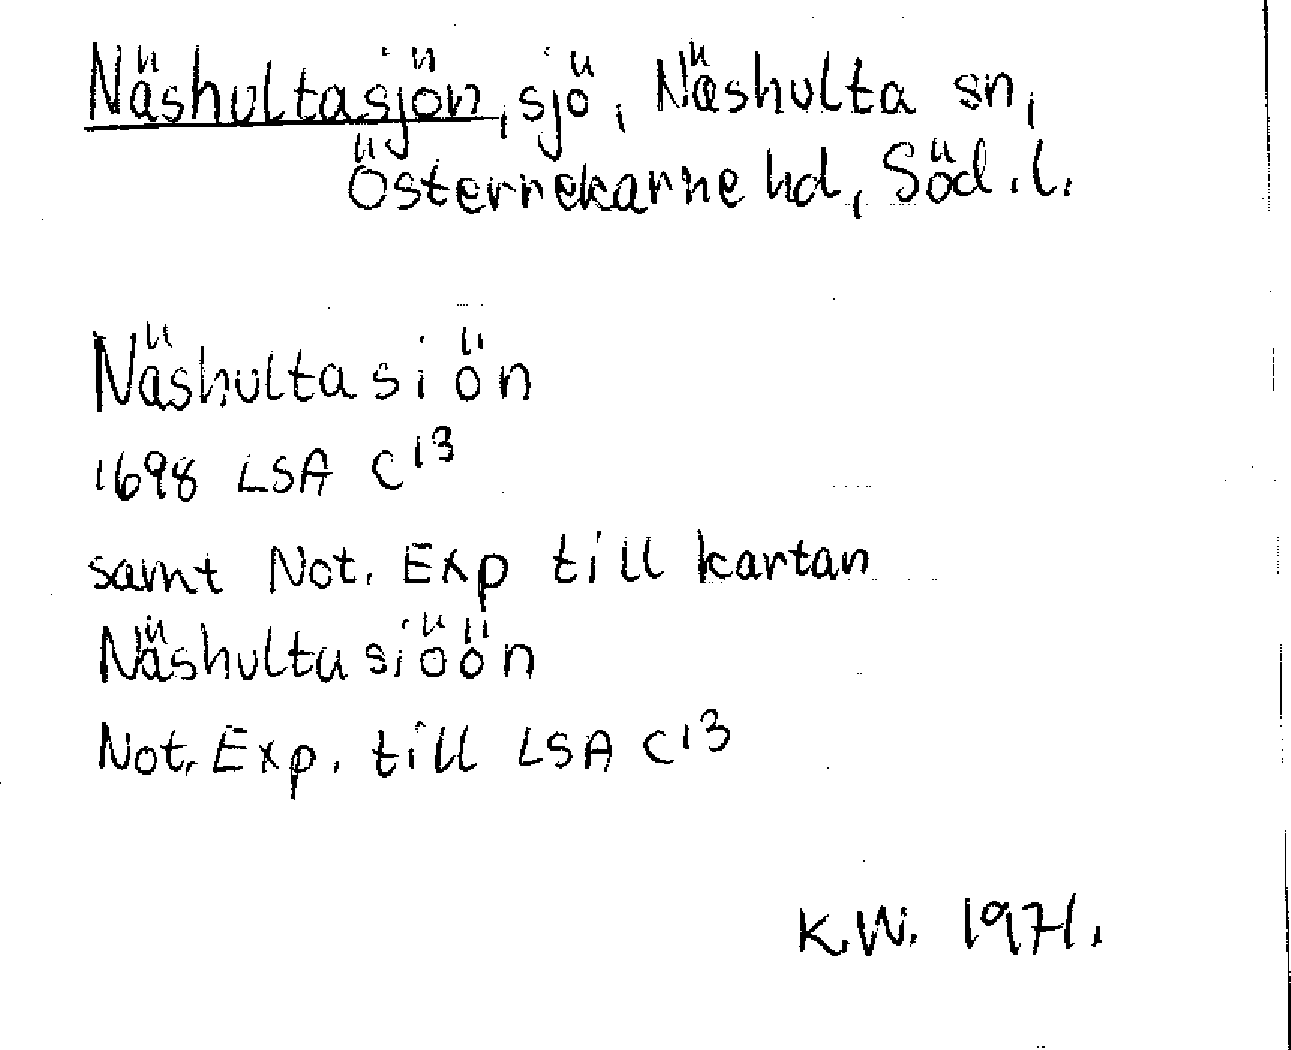 Näshultasjön, sjö, Näshulta sn,
Österrekarne hd, Söd.l.
Näshultasiön
1698 LSA C13
samt Not. Exp till kartan
Näshultasiöön
Not. Exp. till LSA C13
K.W. 1971.